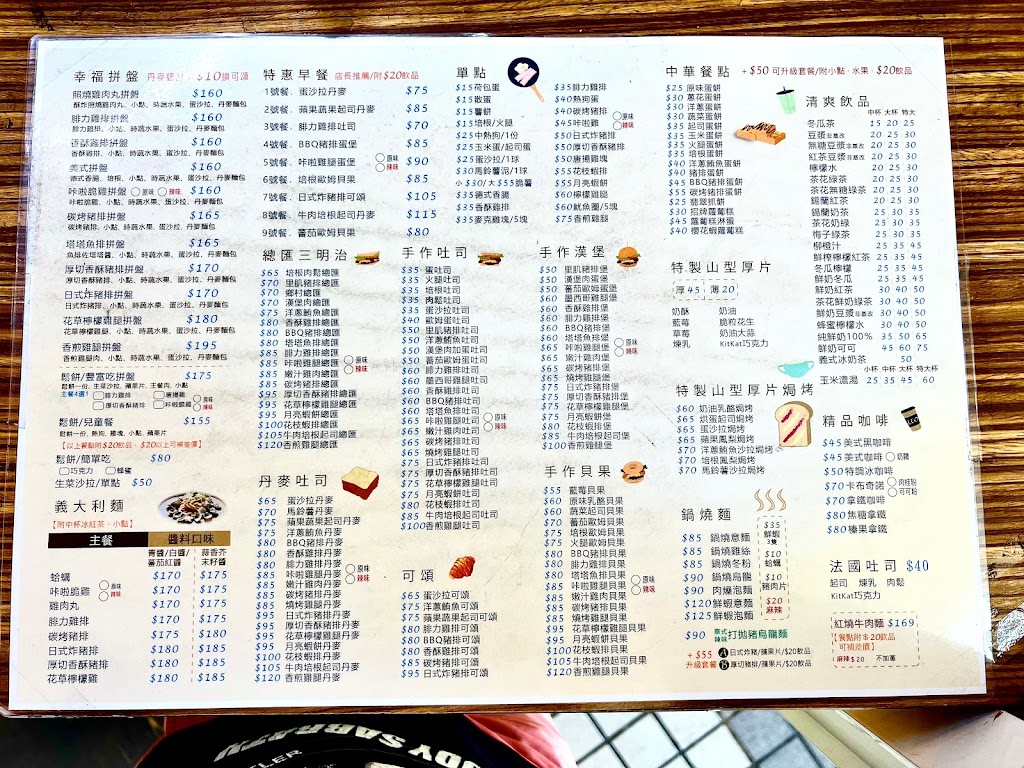 幸福拼盤
照燒雞肉丸拼盤 $160
酥炸照燒雞肉丸、小點、時蔬水果、蛋沙拉、丹麥麵包
腓力雞排拼盤 $160
腓力雞排、小點、時蔬水果、蛋沙拉、丹麥麵包
香酥雞排拼盤 $160
香酥雞排、小點、時蔬水果、蛋沙拉、丹麥麵包
美式拼盤 $160
咔啦脆雞拼盤 ○原味 ○辣味 $160
碳烤豬排拼盤 $165
碳烤豬排、小點、時蔬水果、蛋沙拉、丹麥麵包
塔塔魚排拼盤 $165
厚切香酥豬排拼盤 $170
厚切香酥豬排、小點、時蔬水果、蛋沙拉、丹麥麵包
日式炸豬排拼盤 $170
日式炸豬排、小點、時蔬水果、蛋沙拉、丹麥麵包
花草檸檬雞腿拼盤 $180
花草檸檬雞腿、小點、時蔬水果、蛋沙拉、丹麥麵包
香煎雞腿拼盤 $195
香煎雞腿肉、小點、時蔬水果、蛋沙拉、丹麥麵包
鬆餅/豐富吃拼盤 $175
鬆餅一份、生菜沙拉、蘋果片、主餐肉、小點
主餐4選1 腓力雞排 唐揚雞
厚切香酥豬排 咔啦脆雞 原味 辣味
鬆餅/兒童餐 $155
鬆餅一份、熱狗、雞塊、小點、蘋果片
【以上餐點附$20飲品、$20以上可補差價】
鬆餅/簡單吃 $80
巧克力 蜂蜜
生菜沙拉/單點 $50
義大利麵
【附中杯冰紅茶、小點】
主餐 醬料口味
青醬/白醬/蕃茄紅醬 蒜香芥末籽醬
蛤蠣 $170 $175
咔啦脆雞 原味 辣味 $170 $175
雞肉丸 $170 $175
腓力雞排 $170 $175
碳烤豬排 $175 $180
日式炸豬排 $180 $185
厚切香酥豬排 $180 $185
花草檸檬雞 $180 $185
特惠早餐 店長推薦/附$20飲品
1號餐、蛋沙拉丹麥 $75
2號餐、蘋果蔬果起司丹麥 $85
3號餐、腓力雞排吐司 $70
4號餐、BBQ豬排漢堡 $85
5號餐、咔啦雞腿蛋堡 原味 辣味 $90
6號餐、培根歐姆貝果 $85
7號餐、日式炸豬排可頌 $105
8號餐、牛肉培根起司丹麥 $115
9號餐、蕃茄歐姆貝果 $80
總匯三明治
$65 培根肉鬆總匯
$70 里肌豬排總匯
$70 鄉村總匯
$70 漢堡肉總匯
$75 洋蔥鮪魚總匯
$80 香酥雞排總匯
$80 BBQ豬排總匯
$80 塔塔魚排總匯
$85 腓力雞排總匯
$85 咔啦雞腿總匯 原味 辣味
$85 嫩汁雞肉總匯
$85 碳烤豬排總匯
$95 日式炸豬排總匯
$95 厚切香酥豬排總匯
$95 花草檸檬雞腿總匯
$95 月亮蝦餅總匯
$100 花枝蝦排總匯
$105 牛肉培根起司總匯
$120 香煎雞腿總匯
丹麥吐司
$65 蛋沙拉丹麥
$70 馬鈴薯丹麥
$75 蘋果蔬果起司丹麥
$75 洋蔥鮪魚丹麥
$80 BBQ豬排丹麥
$80 香酥雞排丹麥
$80 腓力雞排丹麥
$85 咔啦雞腿丹麥 原味 辣味
$85 嫩汁雞肉丹麥
$85 碳烤豬排丹麥
$85 燒烤雞腿丹麥
$95 日式炸豬排丹麥
$95 厚切香酥豬排丹麥
$95 花草檸檬雞腿丹麥
$95 月亮蝦餅丹麥
$100 花枝蝦排丹麥
$105 牛肉培根起司丹麥
$120 香煎雞腿丹麥
單點
$15 荷包蛋
$15 散蛋
$15 薯餅
$15 培根/火腿
$25 中熱狗/1份
$25 玉米蛋/起司蛋
$25 蛋沙拉/1球
$30 馬鈴薯泥/1球
小$30/大$55脆薯
$35 德式香腸
$35 香酥雞排
$35 麥克雞塊/5塊
$35 腓力雞排
$40 熱狗蛋
$40 碳烤豬排
$45 咔啦雞 原味 辣味
$50 日式炸豬排
$50 厚切香酥豬排
$50 唐揚雞塊
$55 花枝蝦排
$55 月亮蝦餅
$60 檸檬雞腿
$60 魷魚圈/5塊
$75 香煎雞腿
手作吐司
$35 蛋吐司
$35 火腿吐司
$35 培根吐司
$35 肉鬆吐司
$35 蛋沙拉吐司
$40 歐姆蛋吐司
$50 里肌豬排吐司
$50 洋蔥鮪魚吐司
$50 漢堡肉加蛋吐司
$50 蕃茄歐姆蛋吐司
$60 腓力雞排吐司
$60 墨西哥雞腿吐司
$60 香酥雞排吐司
$60 BBQ豬排吐司
$60 塔塔魚排吐司
$65 咔啦雞腿吐司 原味 辣味
$65 嫩汁雞肉吐司
$65 碳烤豬排吐司
$65 燒烤雞腿吐司
$75 日式炸豬排吐司
$75 厚切香酥豬排吐司
$75 花草檸檬雞腿吐司
$75 月亮蝦餅吐司
$80 花枝蝦排吐司
$85 牛肉培根起司吐司
$100 香煎雞腿吐司
可頌
$65 蛋沙拉可頌
$75 洋蔥鮪魚可頌
$75 蘋果蔬果起司可頌
$80 腓力雞排可頌
$80 BBQ豬排可頌
$80 香酥雞排可頌
$85 碳烤豬排可頌
$95 日式炸豬排可頌
手作漢堡
$50 里肌豬排堡
$50 漢堡肉排堡
$50 蕃茄歐姆蛋堡
$60 墨西哥雞腿堡
$60 香酥雞排堡
$60 腓力雞排堡
$60 BBQ豬排堡
$60 塔塔魚排堡
$65 咔啦雞腿堡 原味 辣味
$65 嫩汁雞肉堡
$65 碳烤豬排堡
$65 燒烤雞腿堡
$75 日式炸豬排堡
$75 厚切香酥豬排堡
$75 花草檸檬雞腿堡
$75 月亮蝦餅堡
$80 花枝蝦排堡
$85 牛肉培根起司堡
$100 香煎雞腿堡
手作貝果
$55 藍莓貝果
$60 原味乳酪貝果
$60 蔬菜起司貝果
$70 蕃茄歐姆貝果
$70 培根歐姆貝果
$80 香酥雞排貝果
$80 BBQ豬排貝果
$80 腓力雞排貝果
$80 塔塔魚排貝果
$85 咔啦雞腿貝果 原味 辣味
$85 嫩汁雞肉貝果
$85 碳烤豬排貝果
$85 燒烤雞腿貝果
$95 日式炸豬排貝果
$95 厚切香酥豬排貝果
$95 花草檸檬雞腿貝果
$95 月亮蝦餅貝果
$100 花枝蝦排貝果
$105 牛肉培根起司貝果
$120 香煎雞腿貝果
中華餐點 +$50可升級套餐/附小點、水果、$20飲品
$25 原味蛋餅
$30 蔥花蛋餅
$30 洋蔥蛋餅
$30 蔬菜蛋餅
$35 起司蛋餅
$35 玉米蛋餅
$35 火腿蛋餅
$35 培根蛋餅
$40 洋蔥鮪魚蛋餅
$40 豬排蛋餅
$45 BBQ豬排蛋餅
$55 碳烤豬排蛋餅
$25 翡翠抓餅
$30 招牌蘿蔔糕
$45 蘿蔔糕淋蛋
$40 櫻花蝦蘿蔔糕
特製山型厚片
厚45 薄20
奶酥 奶油
藍莓 脆粒花生
草莓 奶油大蒜
煉乳 KitKat巧克力
特製山型厚片焗烤
$60 奶油乳酪焗烤
$65 烘蛋起司焗烤
$65 蛋沙拉焗烤
$65 蘋果鳳梨焗烤
$70 洋蔥鮪魚沙拉焗烤
$70 培根鳳梨焗烤
$70 馬鈴薯沙拉焗烤
鍋燒麵
$85 鍋燒意麵
$85 鍋燒雞絲
$85 鍋燒冬粉
$90 鍋燒烏龍
$90 肉燥泡麵
$120 鮮蝦意麵
$125 鮮蝦泡麵
$35 鮮蝦3隻
$10 蛤蠣
$10 豬肉片
$20 麻辣
$90 泰式辣味 打拋豬烏龍麵
+$55升級套餐 A 日式炸豬/蘋果片/$20飲品
B 厚切豬排/蘋果片/$20飲品
清爽飲品
中杯 大杯 特大
冬瓜茶 15 20 25
豆漿 非基改 20 25 30
無糖豆漿 非基改 20 25 30
紅茶豆漿 非基改 20 25 30
檸檬水 20 25 30
茶花綠茶 20 25 30
茶花無糖綠茶 20 25 30
錫蘭紅茶 20 25 30
錫蘭奶茶 25 30 35
茶花奶綠 25 30 35
梅子綠茶 25 30 35
柳橙汁 25 35 45
鮮檸檸檬紅茶 25 35 45
冬瓜檸檬 25 35 45
鮮奶冬瓜 25 35 45
鮮奶紅茶 30 40 50
茶花鮮奶綠茶 30 40 50
鮮奶豆漿 非基改 30 40 50
蜂蜜檸檬水 30 40 50
純鮮奶100% 35 50 65
鮮奶可可 45 60 75
義式冰奶茶 50
小杯 中杯 大杯 特大杯
玉米濃湯 25 35 45 60
精品咖啡
$45 美式黑咖啡
$45 美式咖啡 奶精
$50 特調冰咖啡
$70 卡布奇諾 肉桂粉 可可粉
$70 拿鐵咖啡
$80 焦糖拿鐵
$80 榛果拿鐵
法國吐司 $40
起司 煉乳 肉鬆
KitKat巧克力
紅燒牛肉麵 $169
【餐點附$20飲品可補差價】
麻辣$20 不加蔥